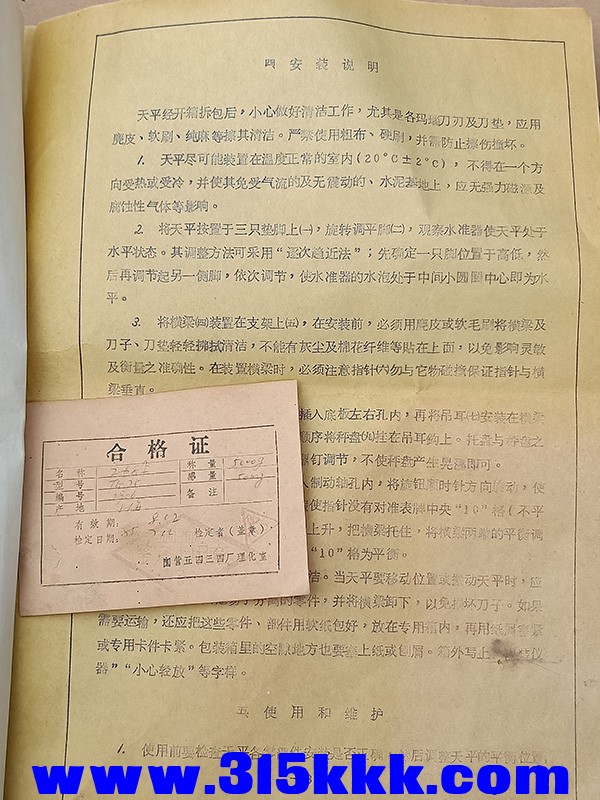 四 安 装 说 明
天平经开箱拆包后，小心做好清洁工作，尤其是各玛瑙刀刃及刀垫，应用
麂皮、软刷、纯麻等擦其清洁。严禁使用粗布、硬刷，并需防止擦伤撞坏。
1. 天平尽可能装置在温度正常的室内(20°C±2°C)，不得在一个方
向受热或受冷，并使其免受气流的及无震动的、水泥基地上，应无强力磁源及
腐蚀性气体等影响。
2. 将天平按置于三只垫脚上㈠，旋转调平脚㈡，观察水准器使天平处于
水平状态。其调整方法可采用“逐次趋近法”；先确定一只脚位置于高低，然
后再调节起另一侧脚，依次调节，使水准器的水泡处于中间小圆圈中心即为水
平。
3. 将横梁㈣装置在支架上㈤，在安装前，必须用麂皮或软毛刷将横梁及
刀子、刀垫轻轻拂拭清洁，不能有灰尘及棉花纤维等贴在上面，以免影响灵敏
及衡量之准确性。在装置横梁时，必须注意指针㈥勿与它物碰撞保证指针与横
梁垂直。
插入底板左右孔内，再将吊耳㈦安装在横梁
顺序将秤盘㈨挂在吊耳钩上。托盘与秤盘之
螺钉调节，不使秤盘产生晃荡即可。
入制动轴孔内，将旋钮顺时针方向转动，使
使指针没有对准表牌中央“10”格(不平
上升，把横梁托住，将横梁两端的平衡调
“10”格为平衡。
洁。当天平要移动位置或搬动天平时，应
零件，并将横梁卸下，以免损坏刀子。如果
需要运输，还应把这些零件、部件用软纸包好，放在专用箱内，再用纸屑塞紧
或专用卡件卡紧。包装箱里的空隙地方也要塞上纸或刨屑。箱外写上
器”“小心轻放”等字样。
五 使 用 和 维 护
1. 使用前要检查天平各零部件安装是否正确，然后调整天平的平衡位置，
合 格 证
名 称 称 量 5000g
型 号 感 量
编 号 备 注
产 地
有 效 期：
检定日期： 检定者(盖章)
国营五四三四厂理化室
www.315kkk.com